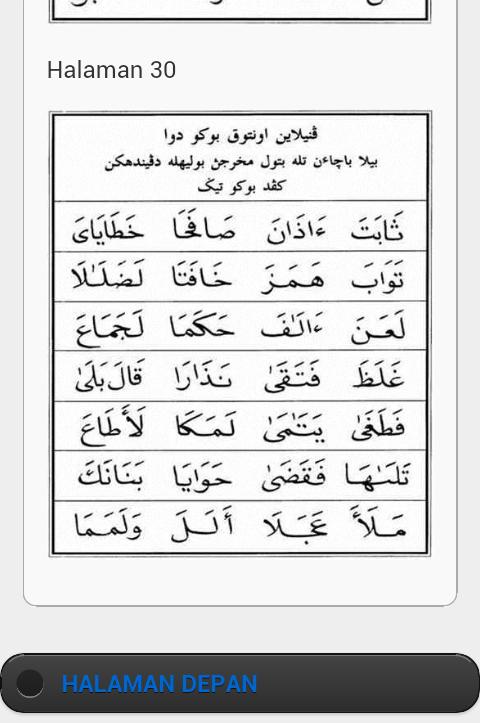 Halaman 30
ڤنيلاين اونتوق بوكو دوا
بيلا باچاءن تله بتول مخرجڽ بوليهله دڤيندهكن
كڤد بوكو تيݢ
ثَابَتَ ءَاذَانَ صَافَحَا خَطَايَاىَ
تَوَابَ هَمَزَ خَافَتَا لَضَلَـٰلَا
لَعَنَ ءَالَـٰفَ حَكَمَا لَجَمَاعَ
غَلَظَ فَتَقَىٰ نَذَارَا قَالَ بَلَىٰ
فَطَغَىٰ يَتَـٰمَىٰ لَمَكَا لَأَطَاعَ
تَلَـٰهَا فَقَضَىٰ حَوَايَا بَنَانَكَ
مَلَأَ عَجَلَا أَلَلَ وَلَمَمَا
HALAMAN DEPAN